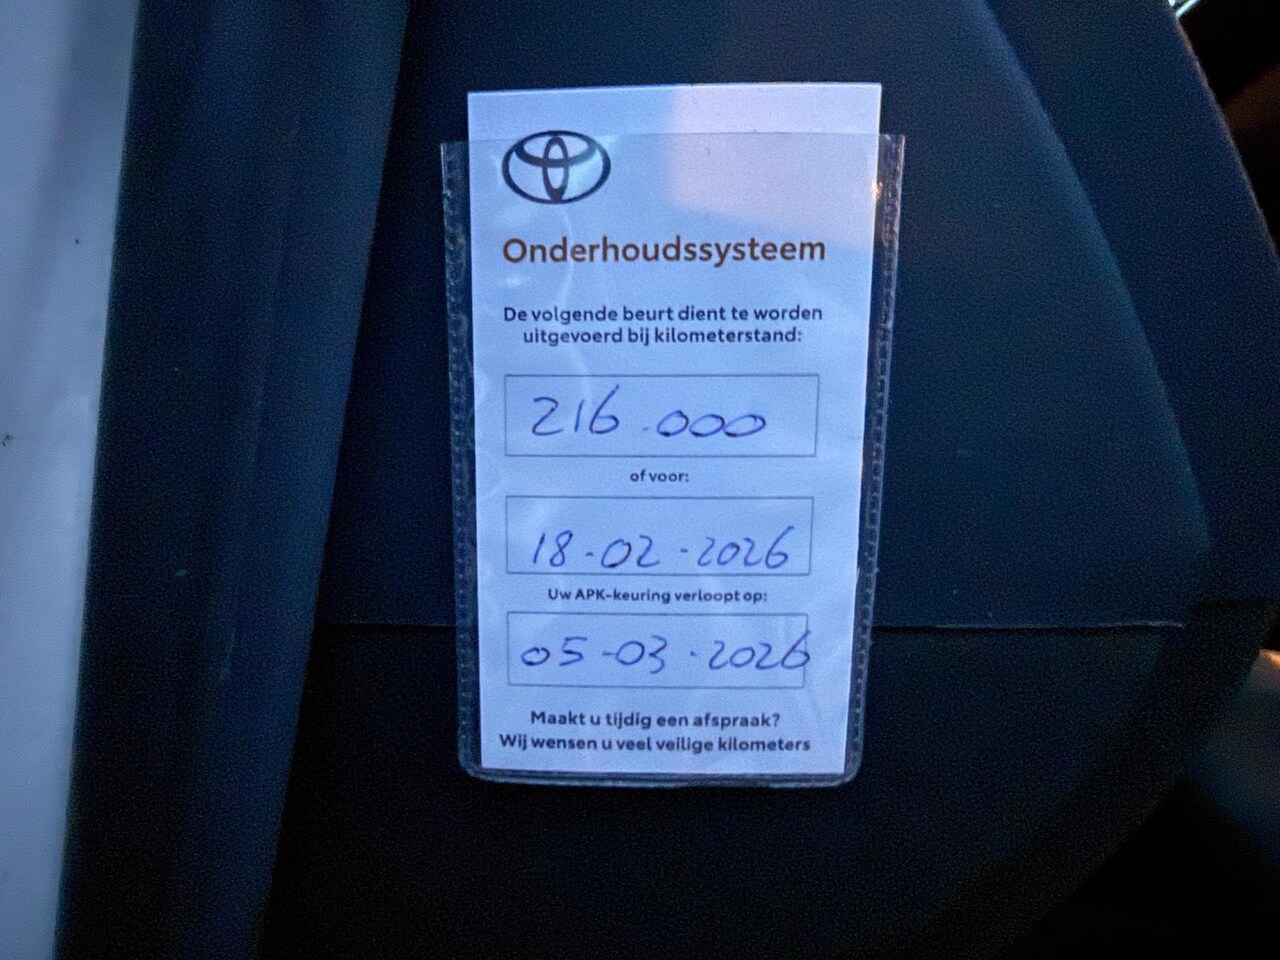 Onderhoudssysteem
De volgende beurt dient te worden
uitgevoerd bij kilometerstand:
216.000
of voor:
18-02-2026
Uw APK-keuring verloopt op:
05-03-2026
Maakt u tijdig een afspraak?
Wij wensen u veel veilige kilometers